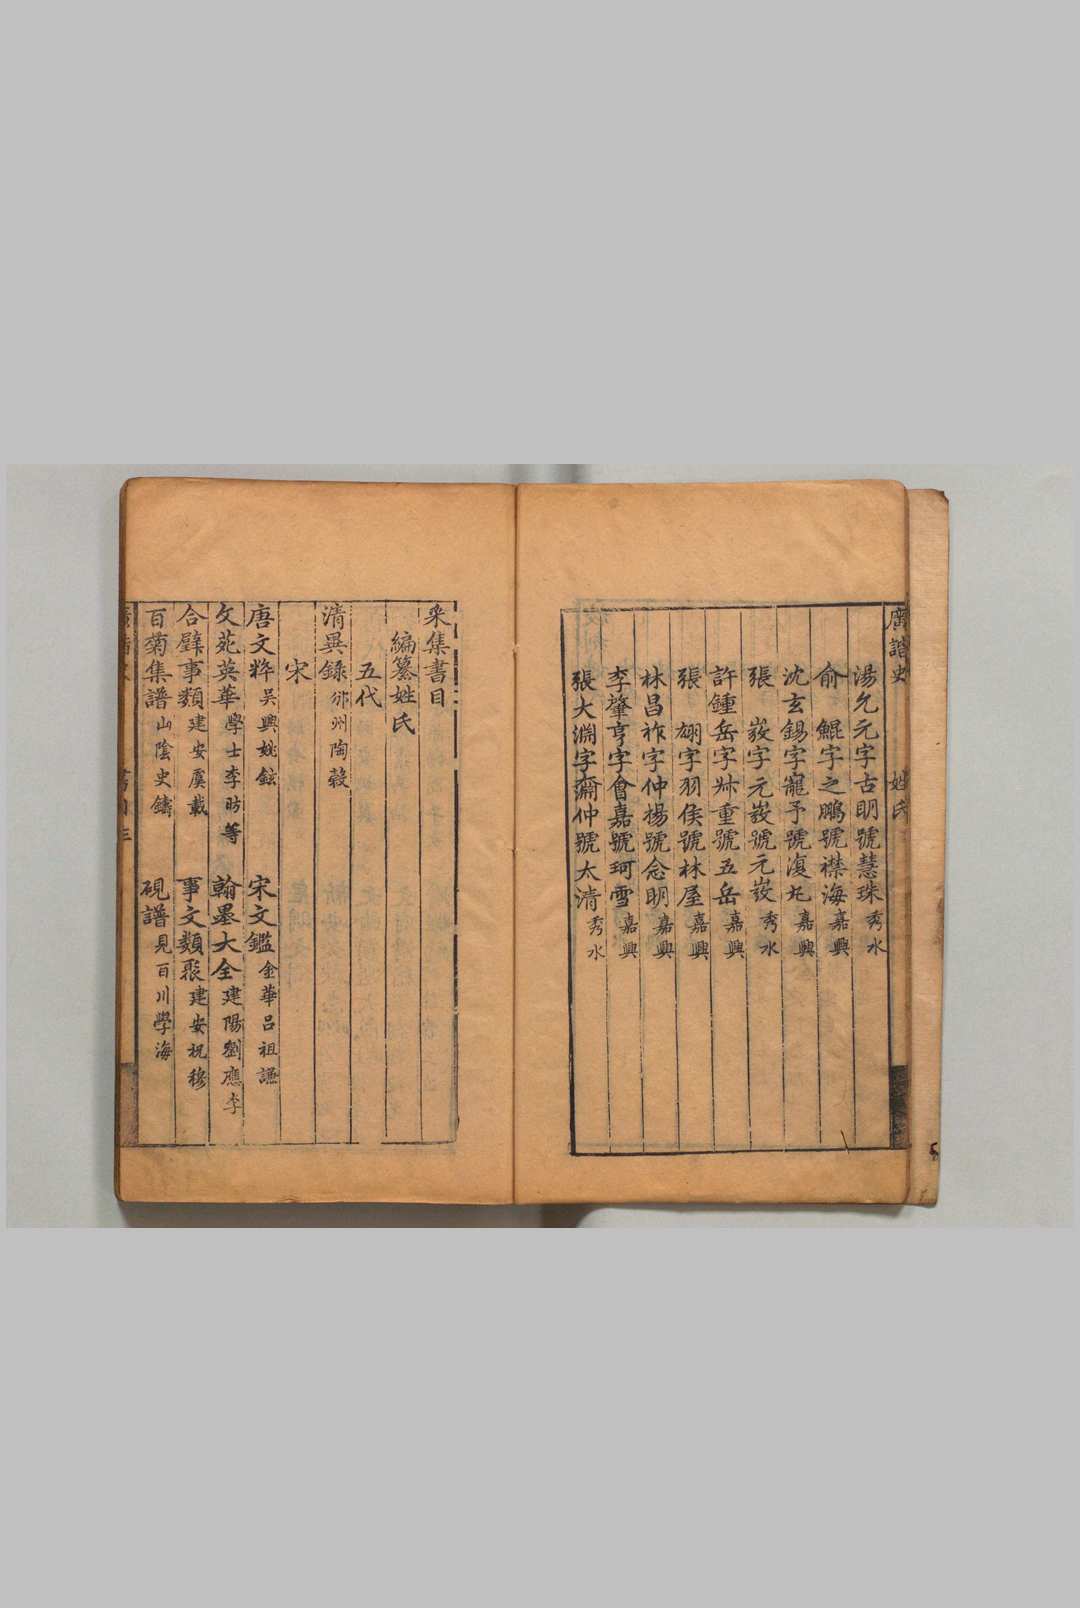 廣諧史 姓氏
湯允元字古明號慧珠秀水
俞鯤字之鵬號襟海嘉興
沈玄錫字寵予號復尨嘉興
張嶽字元嶽號元嶽秀水
許鍾岳字叔重號五岳嘉興
張翃字羽侯號林屋嘉興
林昌祚字仲楊號念明嘉興
李肇亨字會嘉號珂雪嘉興
張大淵字爾仲號太清秀水
采集書目
編纂姓氏
五代
清異錄邠州陶穀
宋
唐文粹吳興姚鉉 宋文鑑金華呂祖謙
文苑英華學士李昉等 翰墨大全建陽劉應李
合璧事類建安虞載 事文類聚建安祝穆
百菊集譜山陰史鑄 硯譜見百川學海